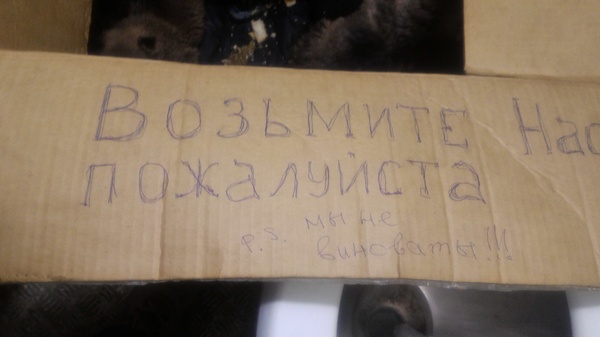 Возьмите Нас
пожалуйста
p.s. мы не
виноваты!!!